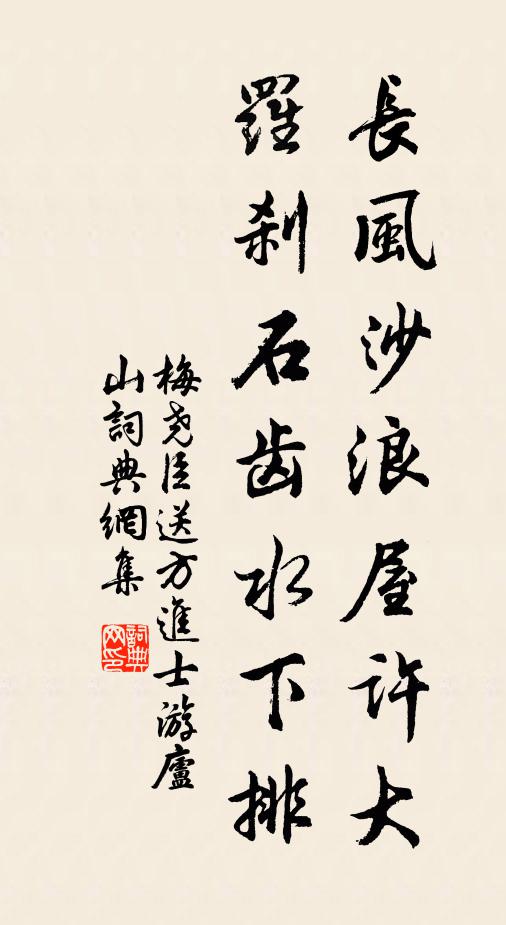 長風沙浪屋許大
羅刹石齿水下排
梅尧臣送方進士游廬
山詞典網集
詞典
网印